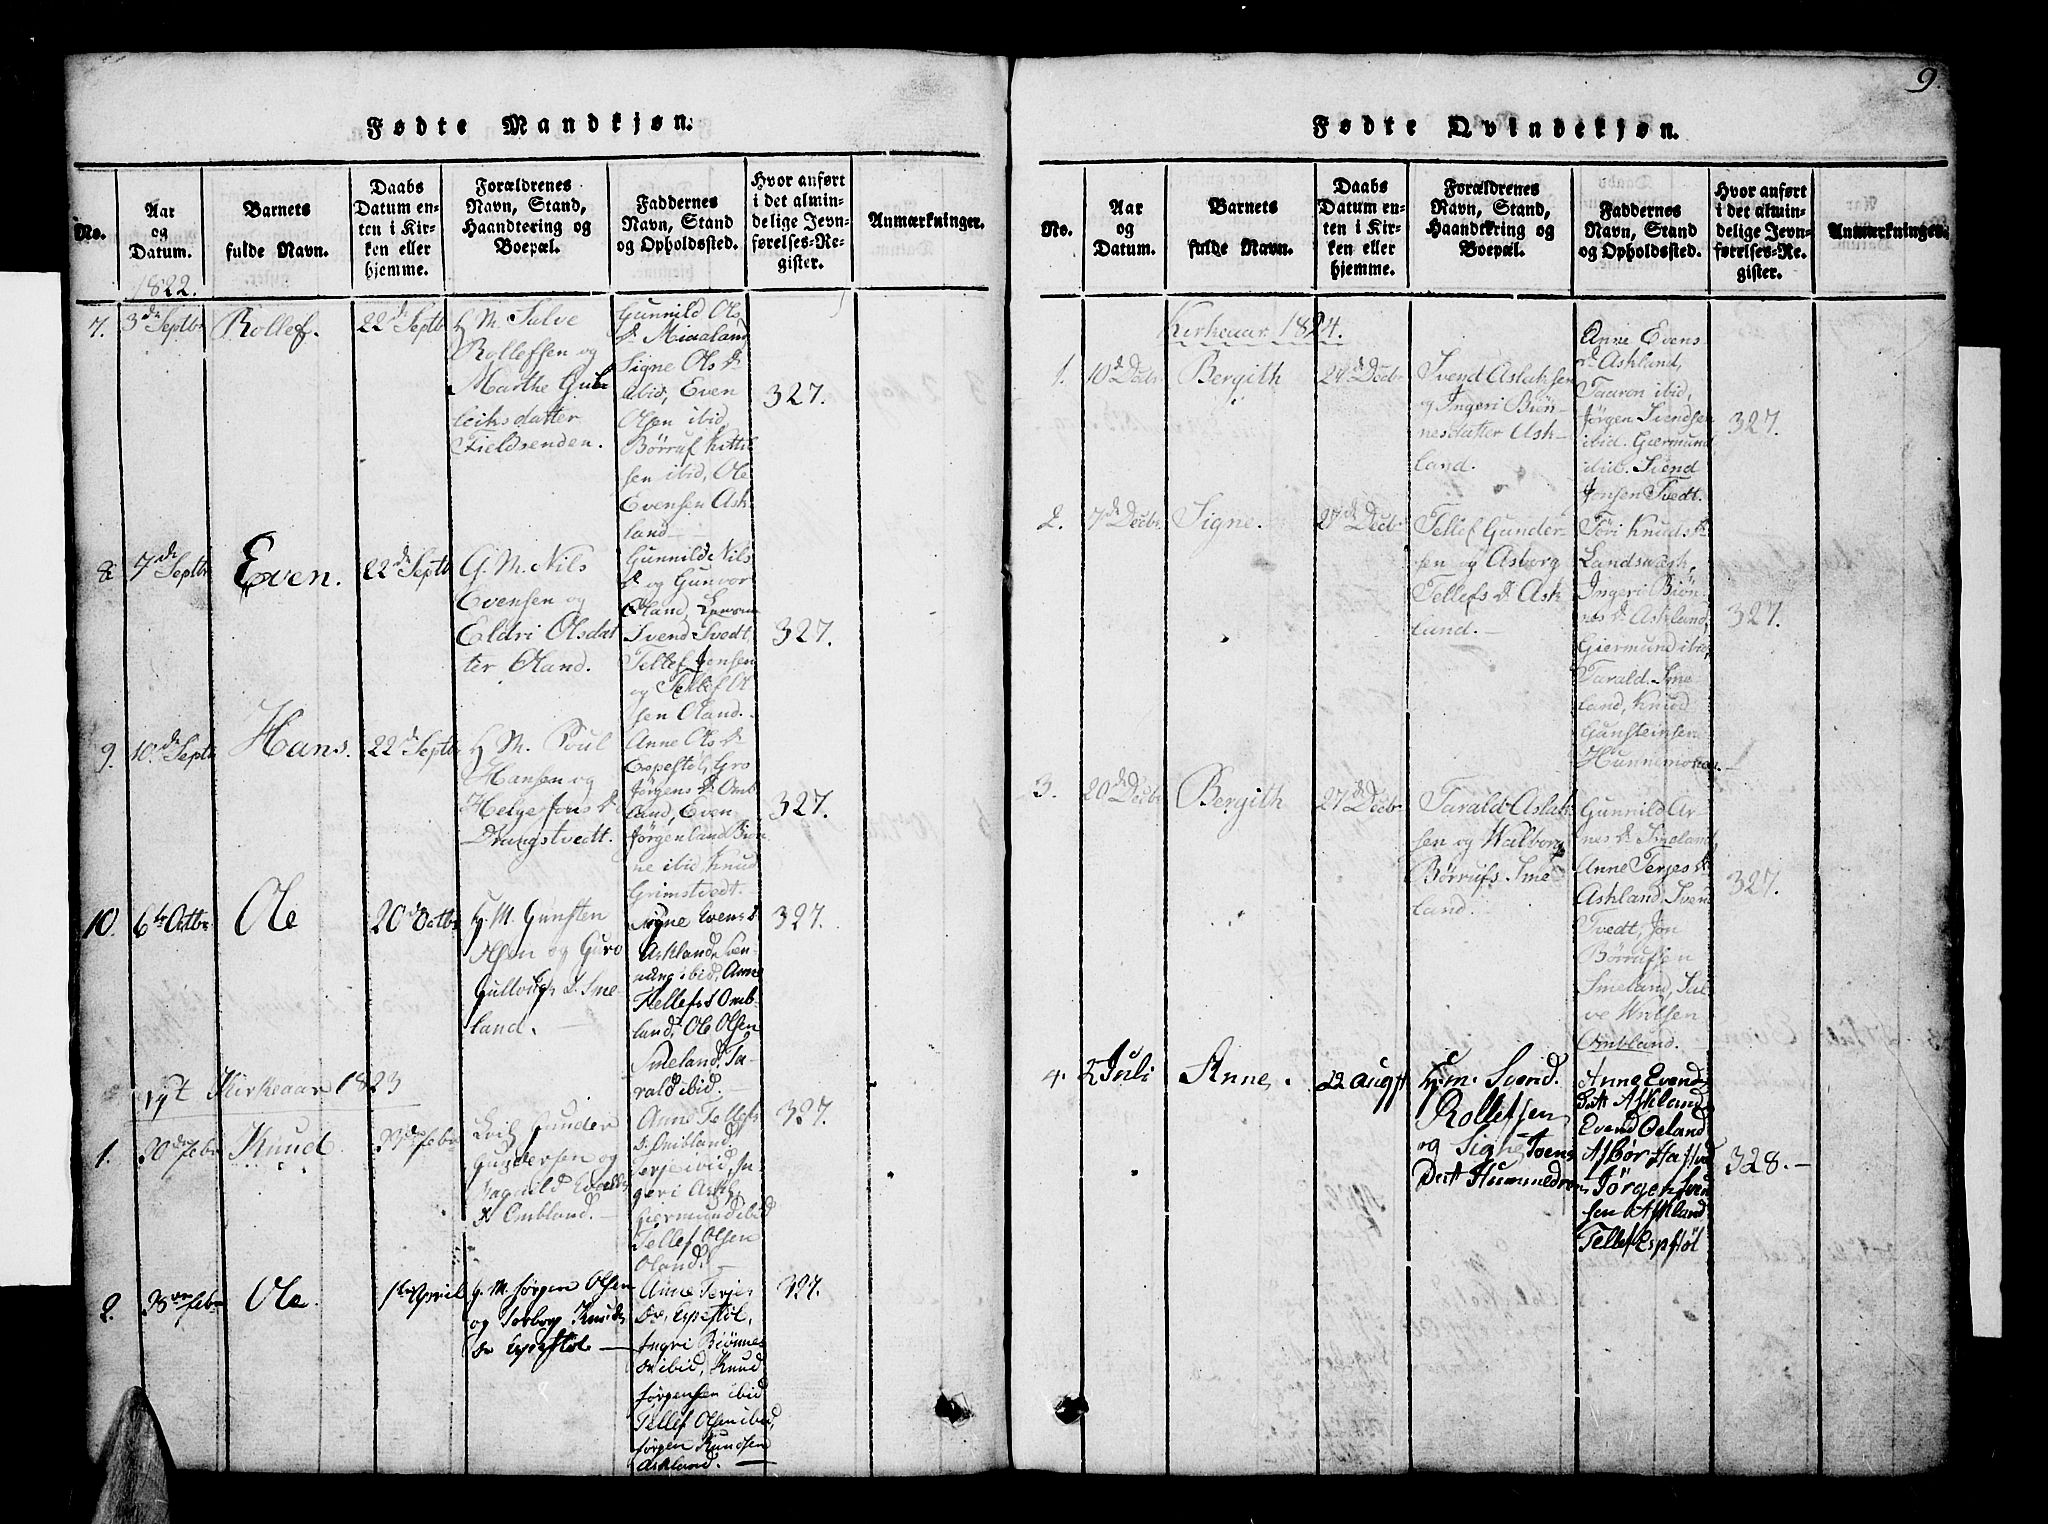 9.
Fødte Mandkjøn.
No.
Aar
og
Datum.
Barnets
fulde Navn.
Daabs
Datum en-
ten i Kir-
ken eller
hjemme.
Forældrenes
Navn, Stand,
Haandtering og
Boepæl.
Faddernes
Navn, Stand
og Opholdssted.
Hvor anført
i det almin-
delige Jevn-
førelses-Re-
gister.
Anmærkninger.
1822.
7.
3de Septbr
Rollef.
22de Septb
G. M. Salve
Rollefsen og
Marthe Gul
leiksdatter
Fieldsenden.
Gunnild Ols
Dr Miaaland
Signe Ols Dr
ibid, Even
Olsen ibid,
Børruf Kittil
sen ibid, Ole
Evensen Ask-
land
327.
8.
7de Septbr
Even.
22de Septb
G. M. Nils
Evensen og
Eldri Olsdat
ter Oland.
Gunnild Nils
Dr og Gunvor
Oland,
Svend Tvedt
Tellef Jensen
og Tellef Ol
sen Oland.
327.
9.
10de Septb
Hans.
22de Septb
G. M. Poul
Hansen og
Helge Jons Dr
Drangstvedt.
Anne Ols Dr
Espestøl, Gro
Jørgens Dr Omb
land, Even
Jørgen land Biøn
ne ibid Knud
Grimstvedt.
327.
10.
6te Octbr
Ole
20de Octbr
G. M. Gunsten
Olsen og Guro
Gulleiks D. Sme-
land.
Signe Evens D
Askland, Sen
nung ibid, Anne
Tellefs D Omb-
land, Ole Olsen
Smeland, Ta-
rald ibid.
327.
Kirkeaar 1823
1.
20de Febr
Knud
23de Febr
Gunder
Gundersen og
Ragnild Evens
Dr Ombland.
Anne Tellefs
D. Ombland.
Terje ibid, In-
geri Askl
Giermund ibid
Tellef Olsen
Oland.
327.
2.
28de Febr
Ole
1ste April
G. M. Jørgen Olsen
og Torborg Knuds
Dr Espestøl
Anne Terjes
Dr, Espestøl,
Ingri Biønnes
Dr ibid, Knud
Jørgensen ibid
Tellef Olsen ibid,
Jørgen Knudsen
Askland.
327.
Fødte Qvindekjøn.
No.
Aar
og
Datum.
Barnets
fulde Navn.
Daabs
Datum en-
ten i Kir-
ken eller
hjemme.
Forældrenes
Navn, Stand,
Haandtering og
Boepæl.
Faddernes
Navn, Stand
og Opholdssted.
Hvor anført
i det almin-
delige Jevn-
førelses-Re-
gister.
Anmærkninger.
Kirkeaar 1824.
1.
10de Decbr
Bergith
27de Decbr
Svend Aslaksen
og Ingeri Biøn-
nesdatter Ask-
land.
Anne Evens
Dr Askland,
Taaron ibid,
Jørgen Svendsen
ibid. Giermund
ibid. Svend
Jonsen Tvedt.
327.
2.
7de Decbr
Signe.
27de Decbr
Tellef Gunder-
sen og Asborg
Tellefs Dr Ask
land.
Tøri Knuds Dr
Landsværk,
Ingeri Biøn-
nes Dr Askland,
Giermund ibid,
Tarald Sme-
land, Knud
Gunsteinsen
327.
3.
20de Decbr
Bergith
27de Decbr
Tarald Aslak-
sen og Walborg
Børrufs Sme
land.
Gunnild Ar-
nes Dr Smeland,
Anne Terjes Dr
Askland, Svend
Tvedt, Jon
Børrufsen
Smeland, Sal-
ve Wulsen
Ombland.
327.
4.
2 Juli
Anne.
22 Augst
G. M. Svend
Rollefsen
og Signe Jvens
Datt
Anne Evend
Datt Askland
Evend Oeland
Asbør
Jørgen Svend
sen Askland
Tellef Espstøl
328.